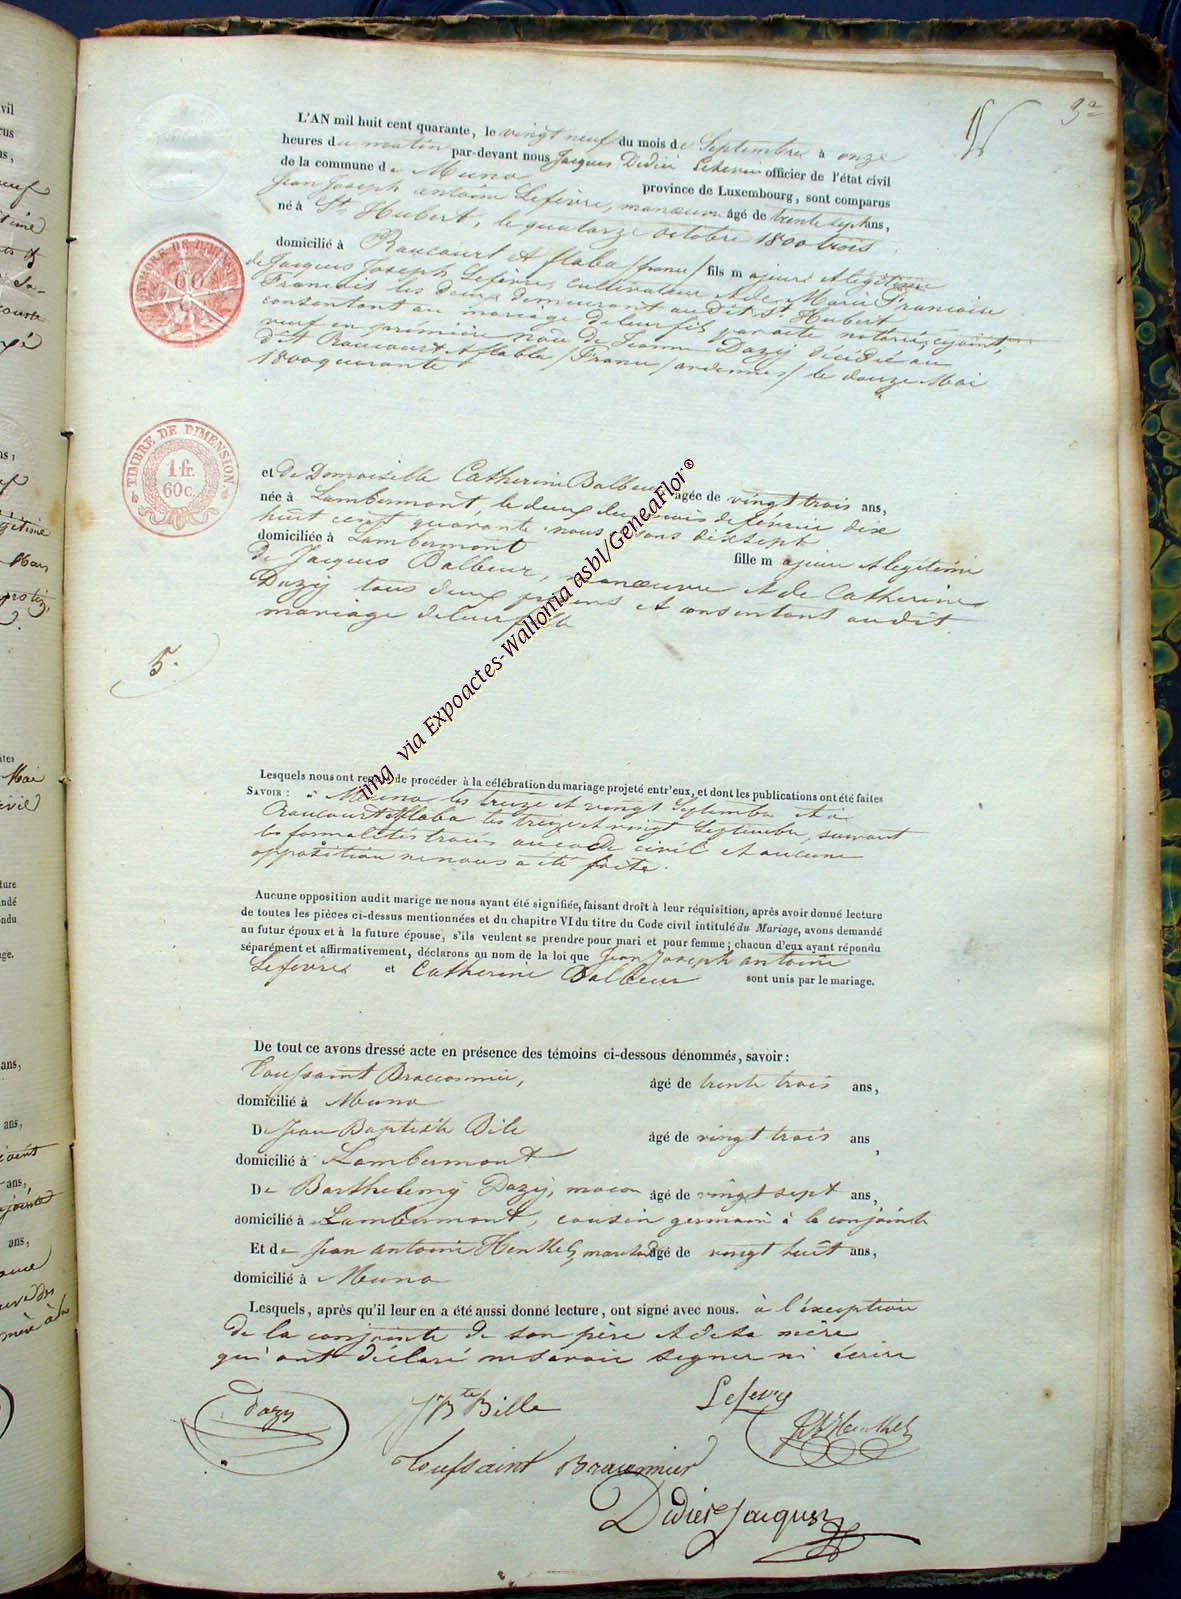 L'AN mil huit cent quarante, le vingt neuf du mois de Septembre à onze
heures du matin par-devant nous Jacques Didier officier de l'état civil
de la commune de Muno province de Luxembourg, sont comparus
Jean Joseph antoine Lefèvre, manoeuvre âgé de trente sept ans,
né à St Hubert, le quatorze octobre 1800 trois
domicilié à Raucourt et flaba /france/ fils majeur et légitime
de Jacques Joseph Lefèvre, cultivateur et de Marie Françoise
François les deux demeurant audit St Hubert
consentant au mariage de leur fils par acte notarié, cejoint,
veuf en première noce de Jeanne Dazÿ décédée au
dit Raucourt et flaba /France/ardennes/ le douze Mai
1800 quarante
TIMBRE DE DIMENSION
1 fr.
60 c.
et de Demoiselle Catherine Balbeur agée de vingt trois ans,
née à Lambermont le deux du mois de fevrier dix
huit cent dixsept
domiciliée à Lambermont fille majeure et légitime
de Jacques Balbeur, manoeuvre et de Catherine
Dazij tous deux présens et consentant audit
mariage de leur fille
5.
Lesquels nous ont requis de procéder à la célébration du mariage projeté entr'eux, et dont les publications ont été faites
SAVOIR : à Muno les treize et vingt Septembre et à
Raucourt et flaba les treize et vingt Septembre, suivant
les formalités au code civil et aucune
opposition ne nous a été faite.
Aucune opposition audit marige ne nous ayant été signifiée, faisant droit à leur réquisition, après avoir donné lecture
de toutes les pièces ci-dessus mentionnées et du chapitre VI du titre du Code civil intitulé du Mariage, avons demandé
au futur époux et à la future épouse, s'ils veulent se prendre pour mari et pour femme; chacun d'eux ayant répondu
séparément et affirmativement, déclarons au nom de la loi que Jean Joseph antoine
Lefevre et Catherine Balbeur sont unis par le mariage.
De tout ce avons dressé acte en présence des témoins ci-dessous dénommés, savoir :
Toussaint Braconnier, âgé de trente trois ans,
domicilié à Muno
De Jean Baptiste Bile âgé de vingt trois ans,
domicilié à Lambermont
De Barthelemÿ Dazij, maçon âgé de vingt sept ans,
domicilié à Lambermont, cousin germain à la conjointe
Et de Jean antoine Henkel, marchand âgé de vingt huit ans,
domicilié à Muno
Lesquels, après qu'il leur en a été aussi donné lecture, ont signé avec nous. à l'éxception
de la conjointe de son père et de sa mère
qui ont déclaré ne savoir signer ni écrire
Dazy JBte Bille Lefevre
Toussaint Braconnier
Didier Jacques
img via Expoactes-Wallonia asbl/GeneaFlor®